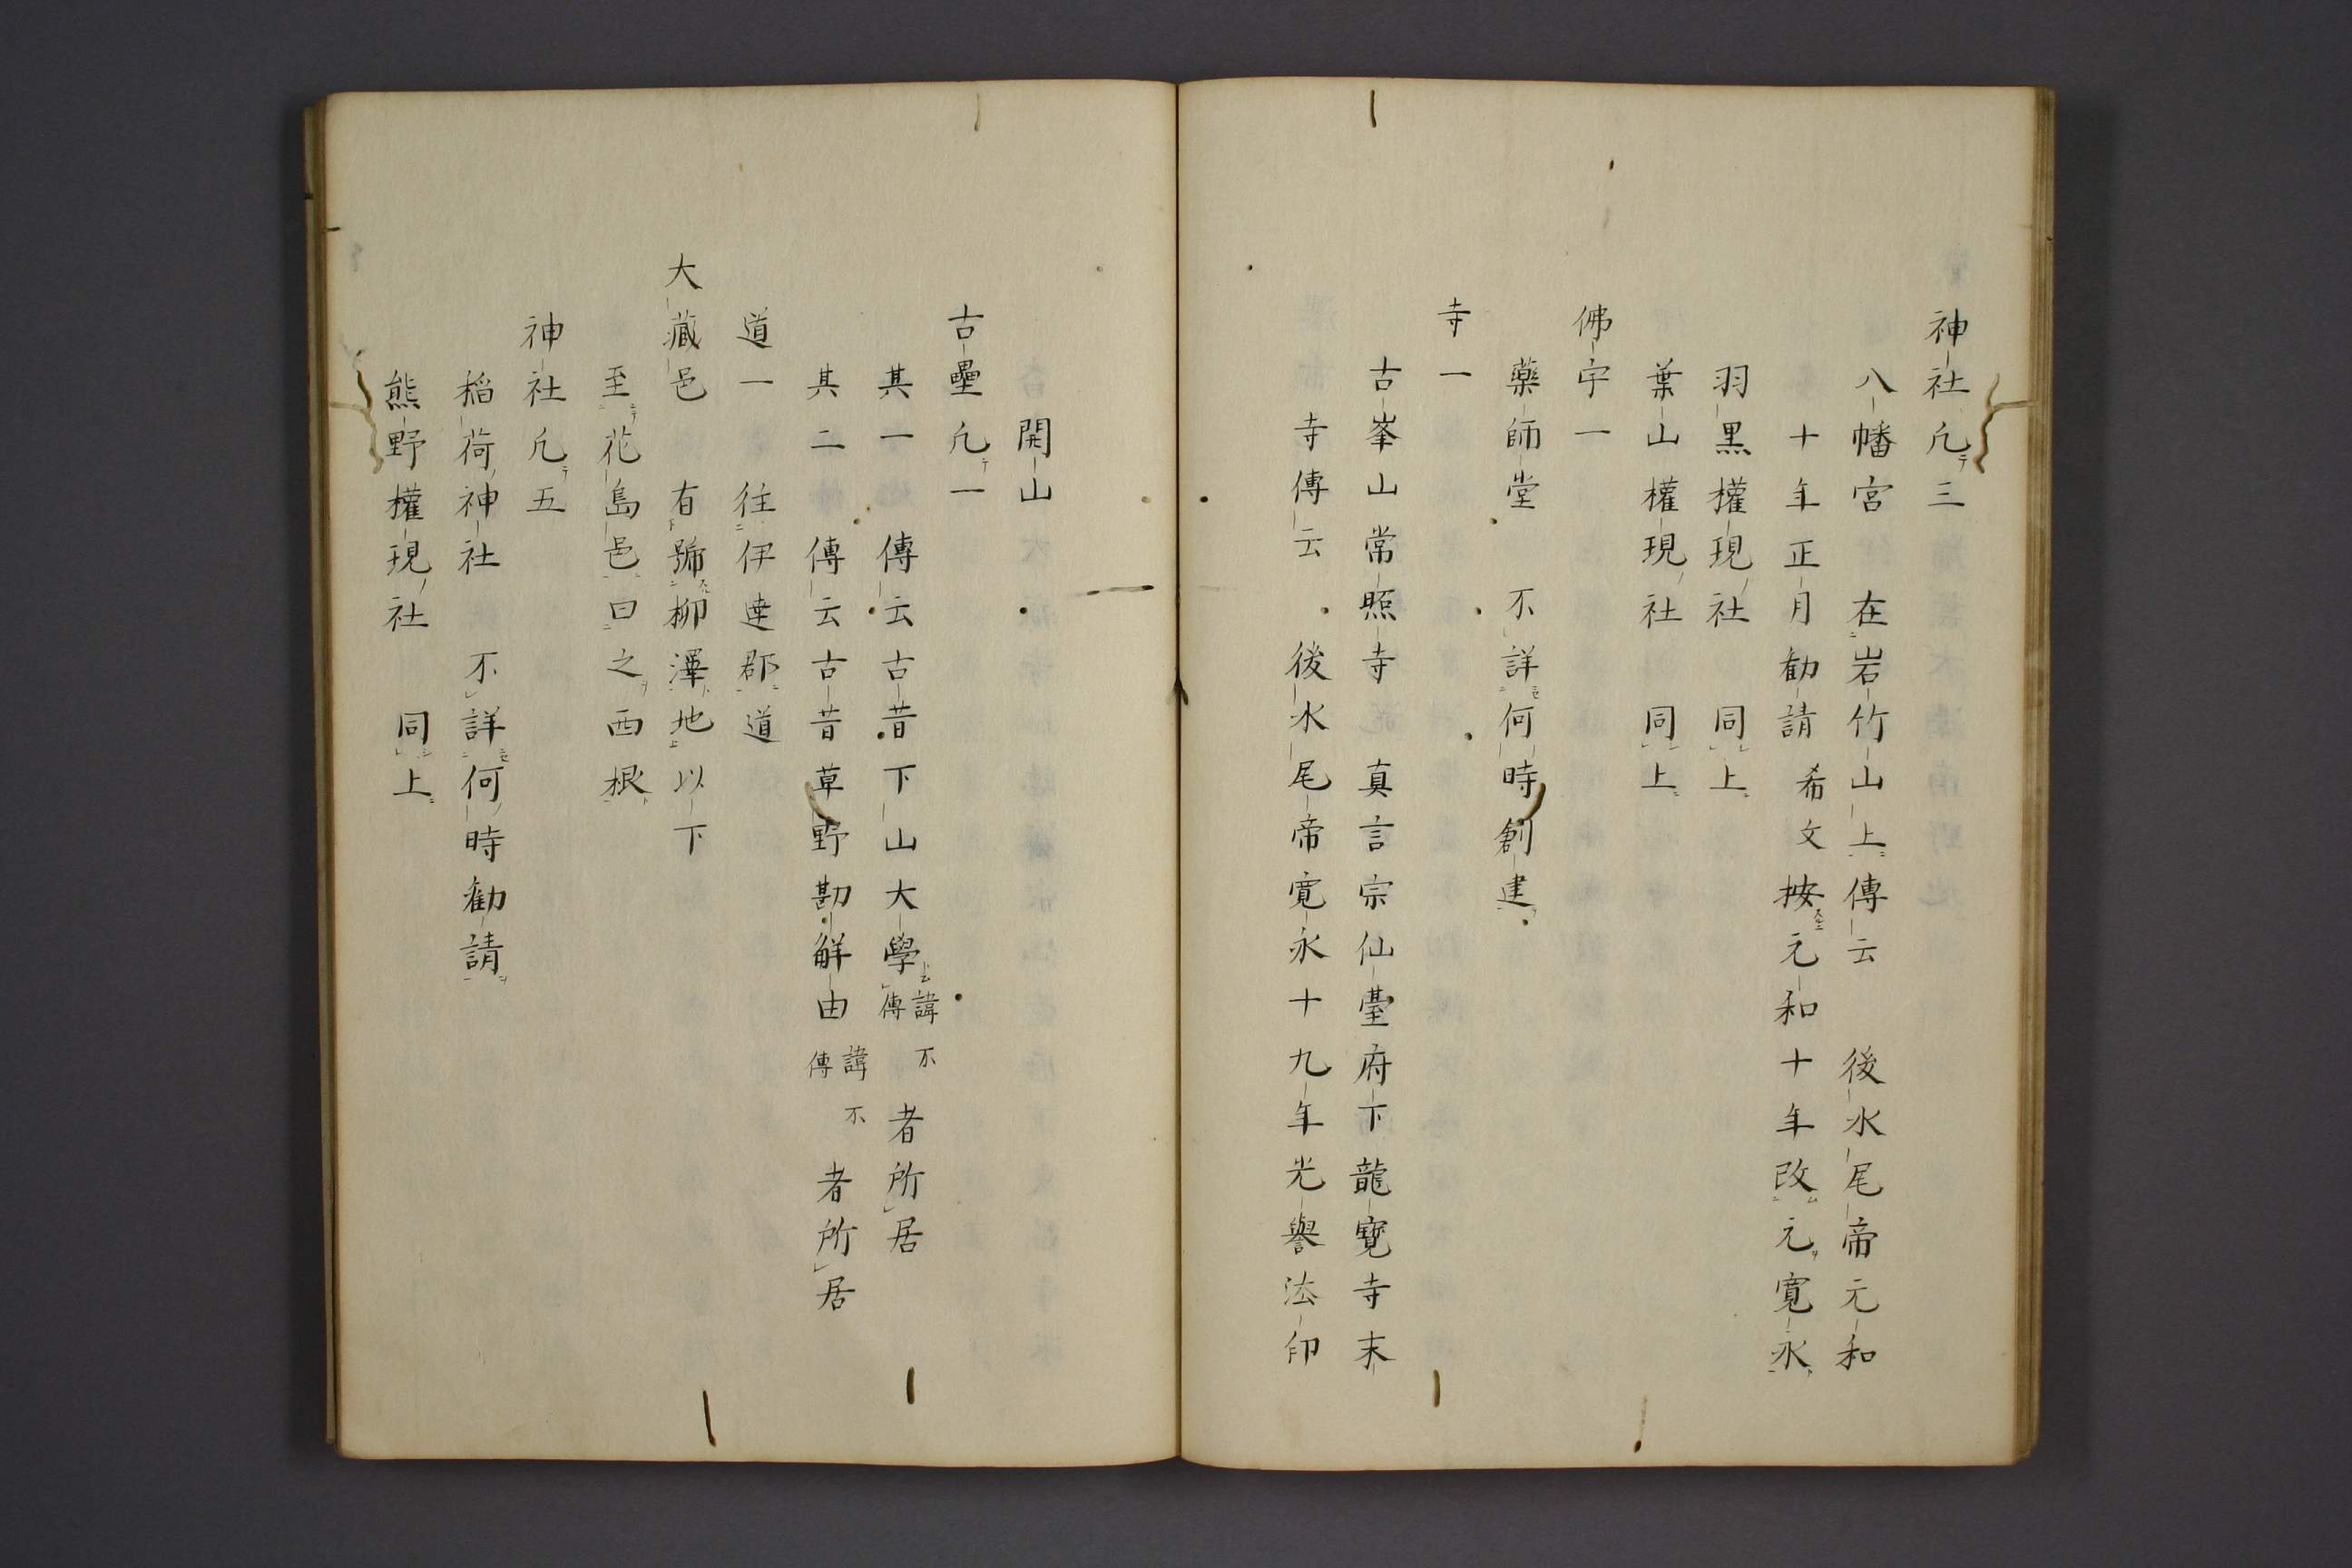 神社凢三
八幡宮　在岩竹山上傳云　後水尾帝元和
十年正月勧請　希文按元和十年改元寛永
羽黒權現社　同上
葉山權現社　同上
佛宇一
藥師堂　不詳何時創建
寺一
古峯山常照寺　真言宗仙臺府下龍寶寺末
寺傳云　後水尾帝寛永十九年光譽法印
開山
古壘凢一
其一　傳云古昔下山大學諱不傳者所居
其二　傳云古昔草野勘解由諱不傳者所居
道一　往伊達郡道
大藏邑　有號柳澤地以下
至花島邑曰之西根
神社凢五
稲荷神社　不詳何時勧請
熊野權現社　同上